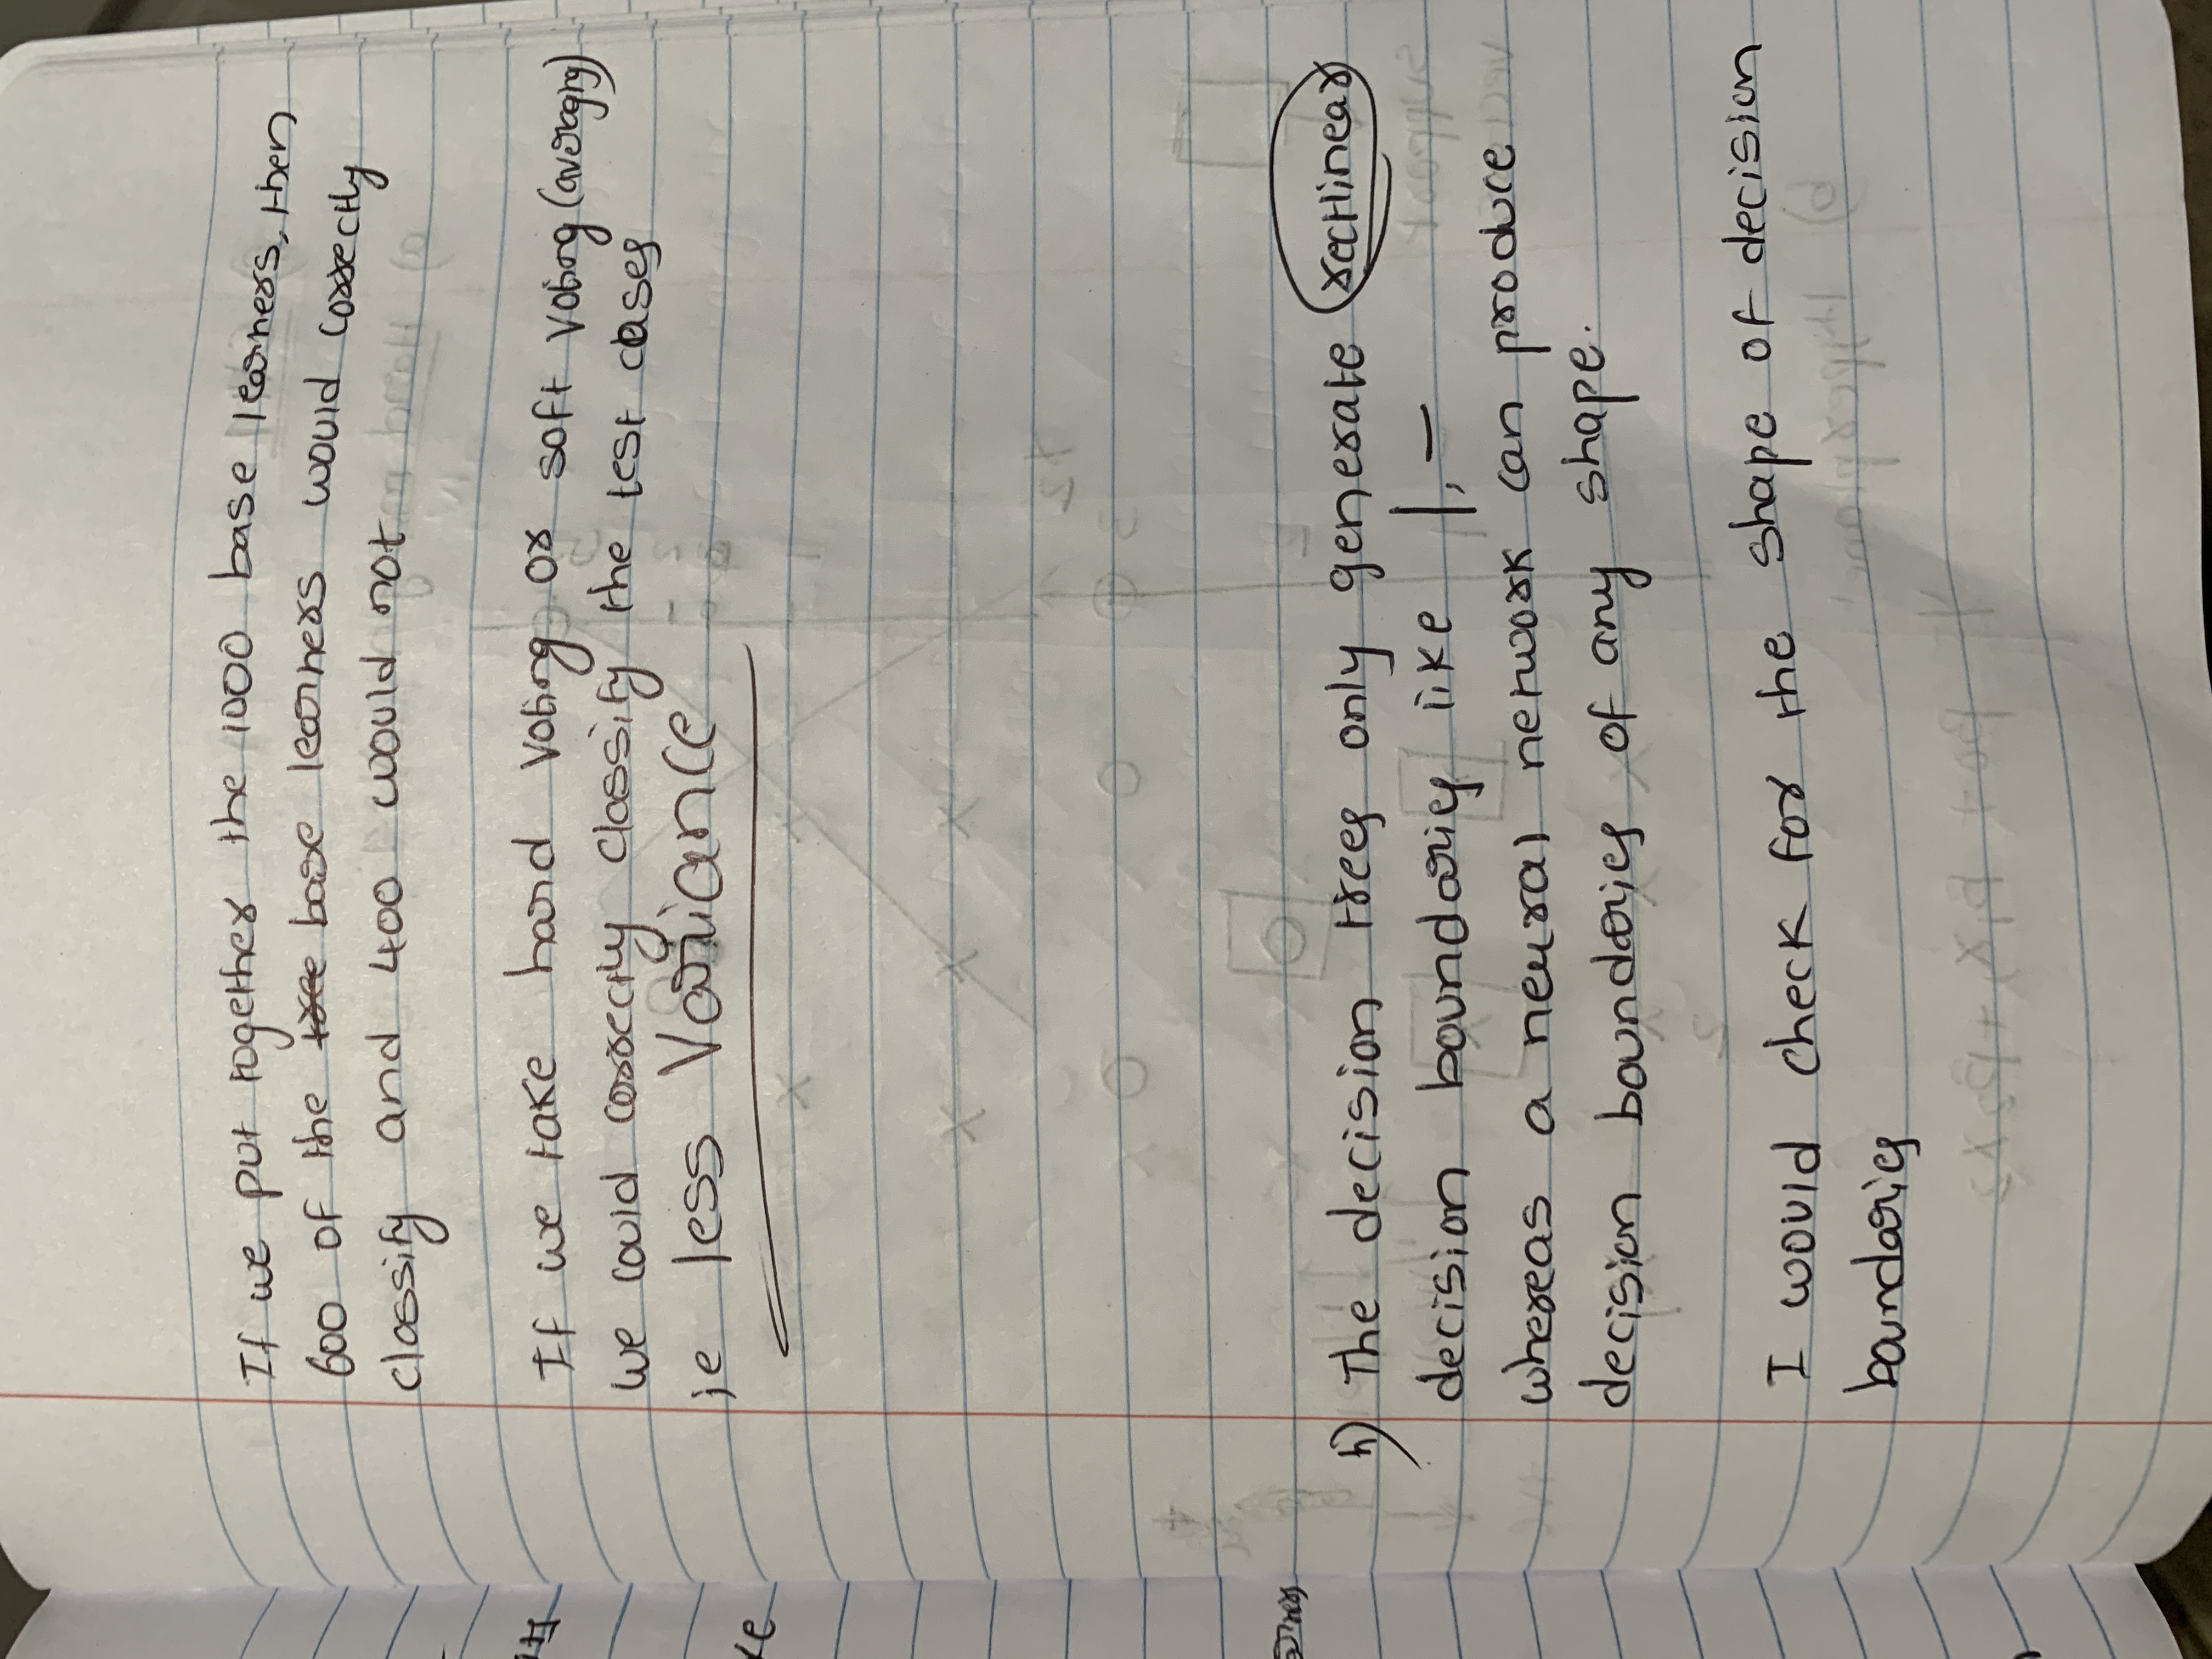 If we put together the 1000 base learners, then
600 of the tree base learners would correctly
classify and 400 would not
If we take hard voting or soft voting (averaging)
we could correctly classify the test cases
ie less Variance
h) The decision trees only generate rectlinear
decision boundaries like |, —
whereas a neural network can produce
decision boundaries of any shape.
I would check for the shape of decision
boundaries